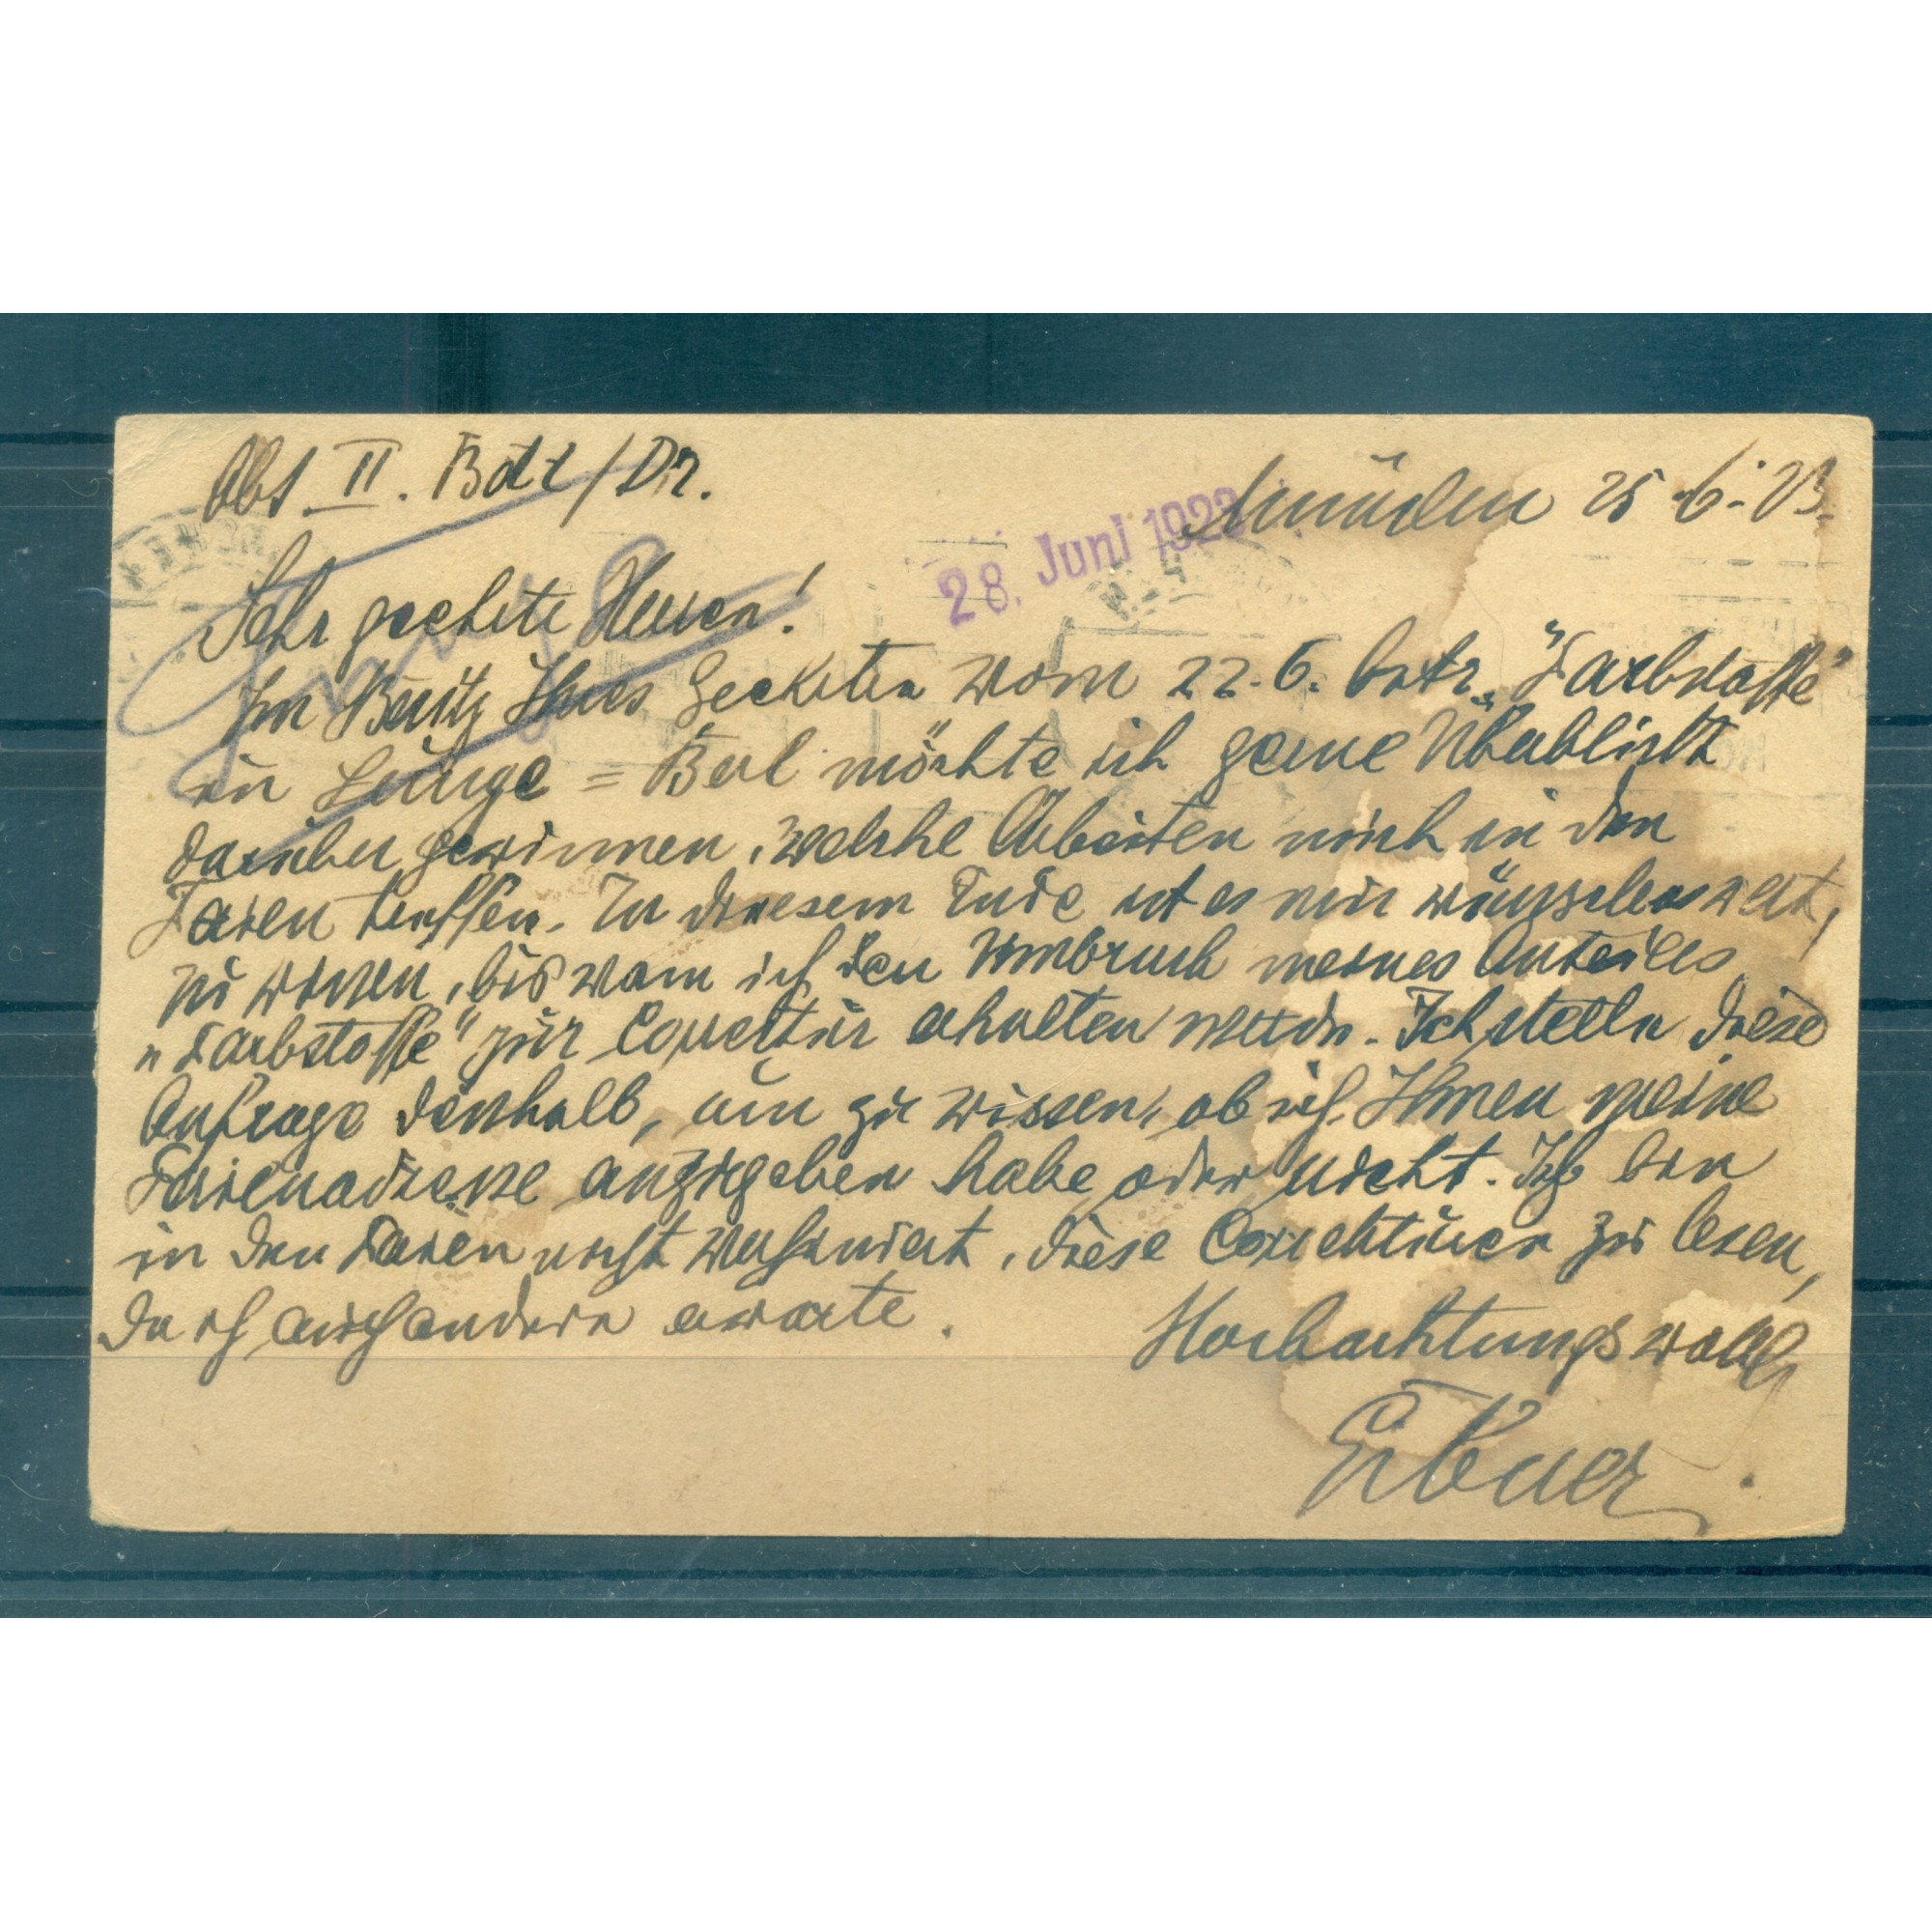 Abt. II. Bdt/Dr.
München 25.6.23.
28. Juni 1923
Sehr geehrte Herren!
Im Besitz Ihres Geehrten vom 22.6. betr. "Farbstoffe"
in Lunge=Berl möchte ich gerne Überblick
darüber gewinnen, welche Arbeiten mich in den
Ferien treffen. Zu diesem Ende ist es mir wünschenswert,
zu wissen, bis wann ich den Umbruch meines Anteiles
"Farbstoffe" zur Correctur erhalten werde. Ich stelle diese
Anfrage deshalb, um zu wissen, ob ich Ihnen meine
Ferienadresse anzugeben habe oder nicht. Ich bin
in den Ferien nicht, diese Correcturen zu lesen,
da ich auch andere erwarte.
Hochachtungsvoll
Eibner